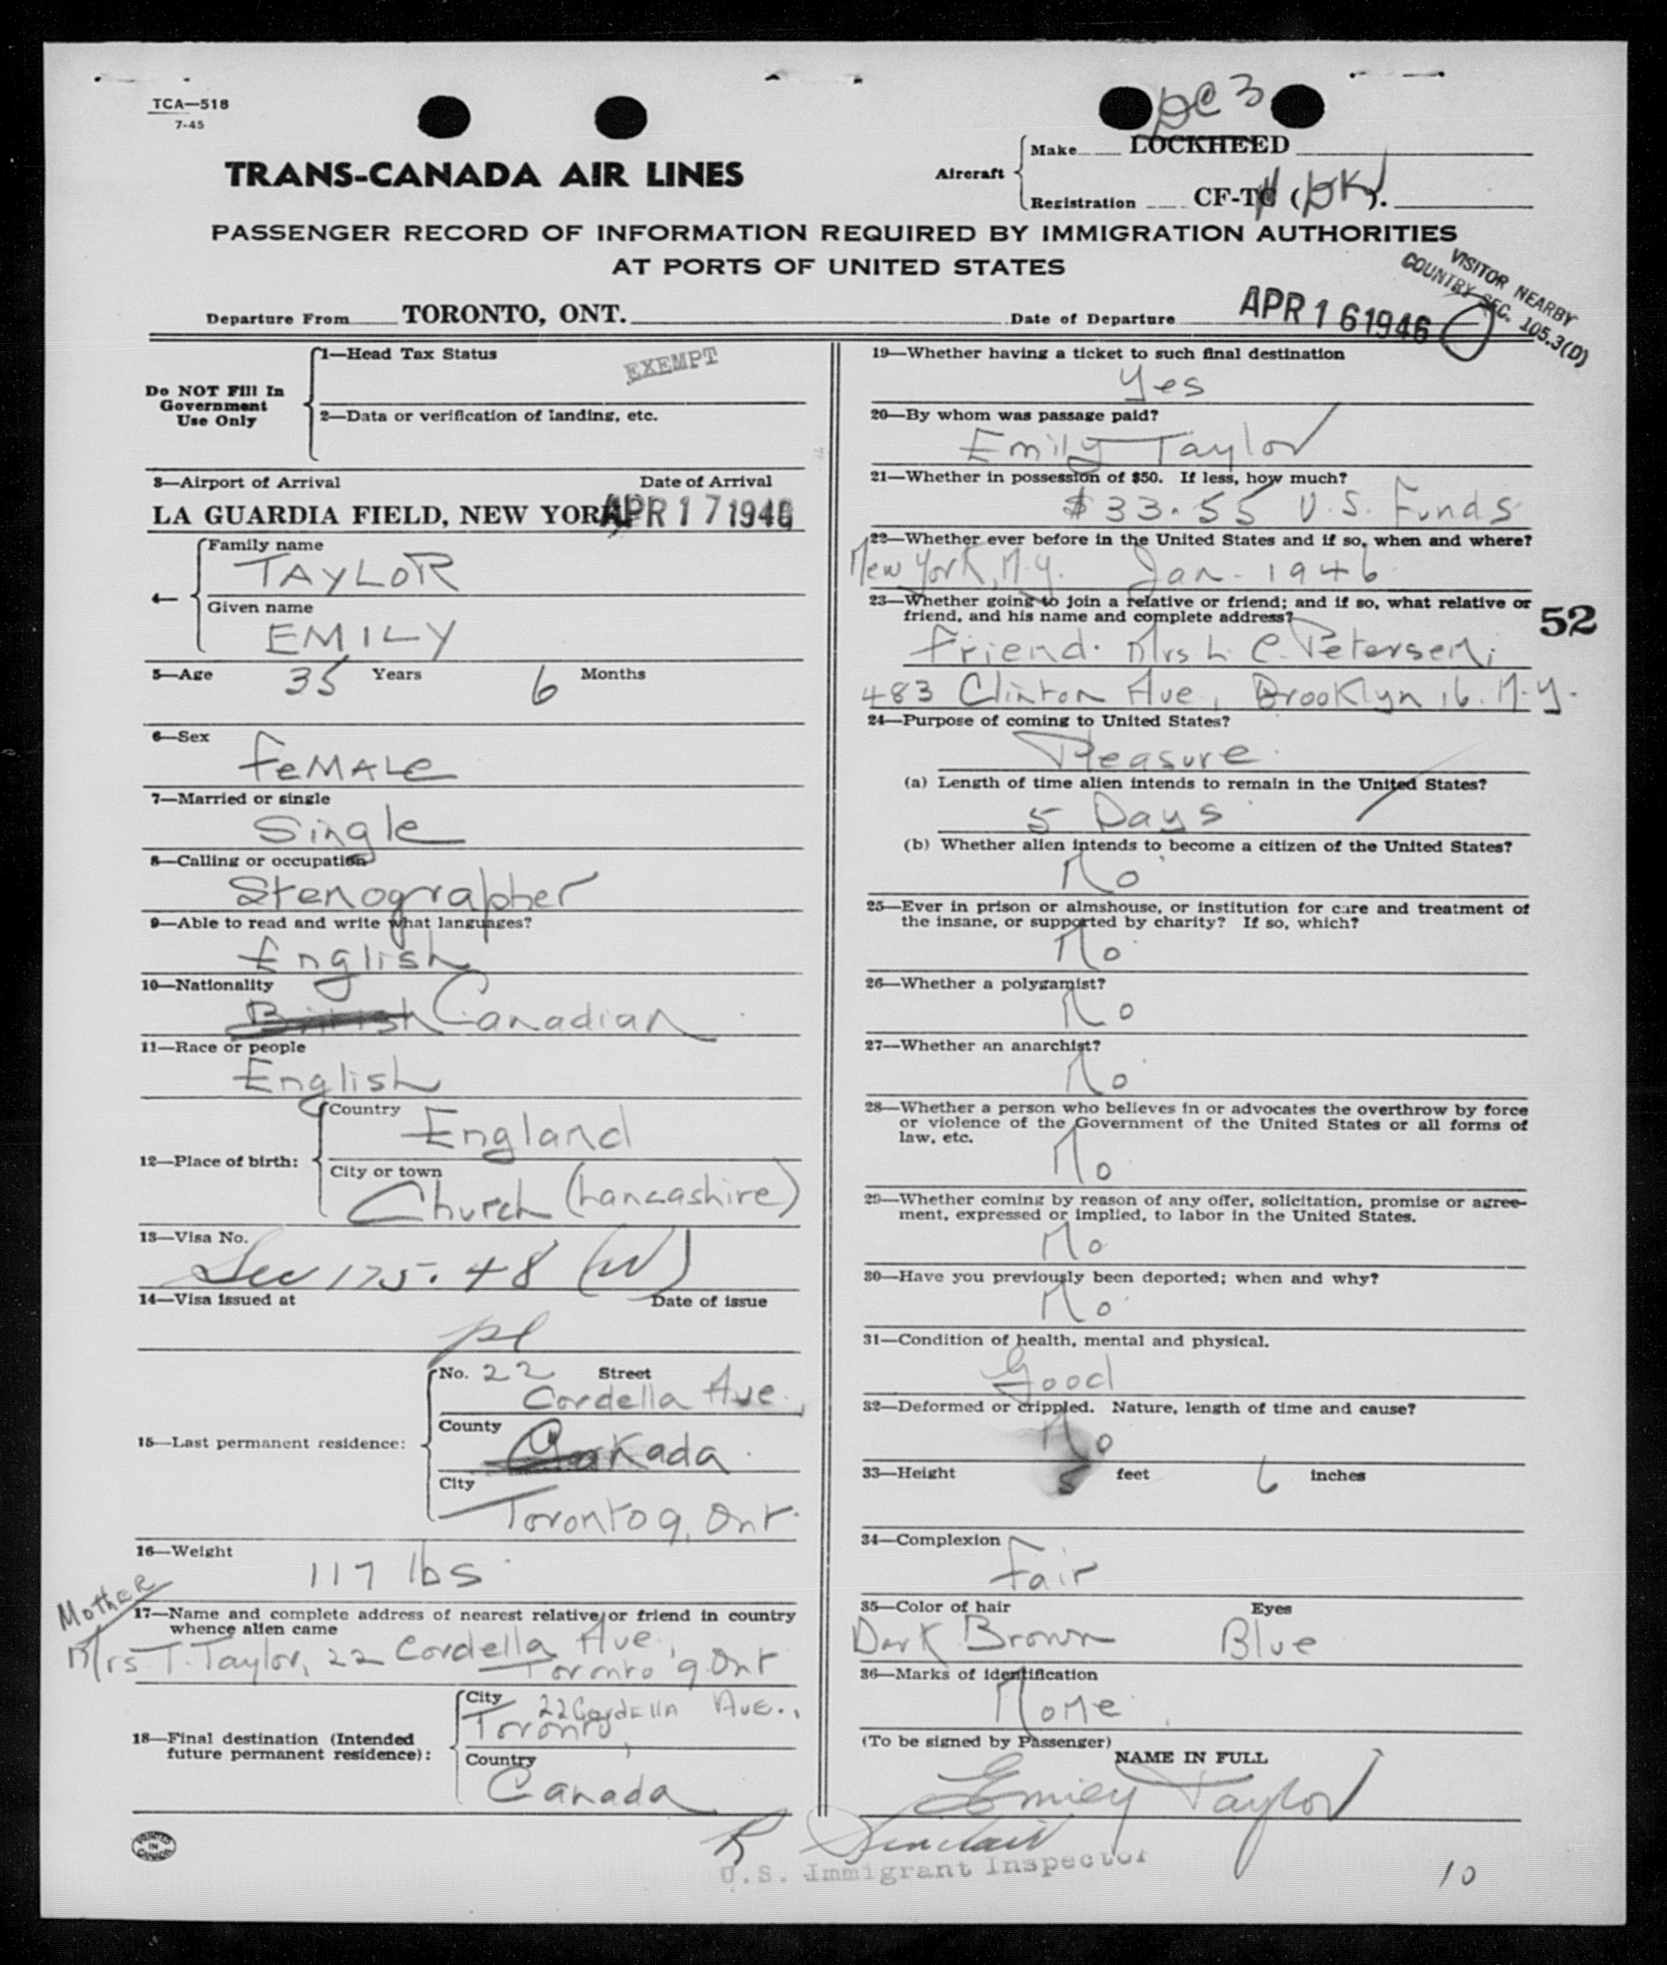 TCA—518
7-45
DC3
TRANS-CANADA AIR LINES
Aircraft
Make LOCKHEED
Registration CF-TC ( DK ).
PASSENGER RECORD OF INFORMATION REQUIRED BY IMMIGRATION AUTHORITIES
AT PORTS OF UNITED STATES
VISITOR NEARBY
COUNTRY SEC. 105.3(D)
Departure From TORONTO, ONT. Date of Departure APR 16 1946
Do NOT Fill In
Government
Use Only
1—Head Tax Status EXEMPT
2—Data or verification of landing, etc.
3—Airport of Arrival Date of Arrival
LA GUARDIA FIELD, NEW YORK, APR 17 1946
4—
Family name
TAYLOR
Given name
EMILY
5—Age 35 Years 6 Months
6—Sex
FeMALe
7—Married or single
Single
8—Calling or occupation
Stenographer
9—Able to read and write what languages?
English
10—Nationality
British Canadian
11—Race or people
English
12—Place of birth:
Country
England
City or town
Church (Lancashire)
13—Visa No.
Sec 175.48 (W)
14—Visa issued at Date of issue
15—Last permanent residence:
No. 22 Street
Cordella Ave.,
County
Canada
City
Toronto 9, Ont.
16—Weight
117 lbs
Mother
17—Name and complete address of nearest relative or friend in country
whence alien came
Mrs T. Taylor, 22 Cordella Ave.,
Toronto 9. Ont
18—Final destination (Intended
future permanent residence):
City 22 Cordella Ave.,
Toronto,
Country
Canada
PRINTED
IN
CANADA
19—Whether having a ticket to such final destination
Yes
20—By whom was passage paid?
Emily Taylor
21—Whether in possession of $50. If less, how much?
$33.55 U.S. Funds
22—Whether ever before in the United States and if so, when and where?
New York, N.Y. Jan - 1946
23—Whether going to join a relative or friend; and if so, what relative or
friend, and his name and complete address?
52
Friend. Mrs L. C. Petersen,
483 Clinton Ave., Brooklyn 16. N.Y.
24—Purpose of coming to United States?
Pleasure
(a) Length of time alien intends to remain in the United States?
5 Days
(b) Whether alien intends to become a citizen of the United States?
No
25—Ever in prison or almshouse, or institution for care and treatment of
the insane, or supported by charity? If so, which?
No
26—Whether a polygamist?
No
27—Whether an anarchist?
No
28—Whether a person who believes in or advocates the overthrow by force
or violence of the Government of the United States or all forms of
law, etc.
No
29—Whether coming by reason of any offer, solicitation, promise or agree-
ment, expressed or implied, to labor in the United States.
No
30—Have you previously been deported; when and why?
No
31—Condition of health, mental and physical.
Good
32—Deformed or crippled. Nature, length of time and cause?
No
33—Height 5 feet 6 inches
34—Complexion
Fair
35—Color of hair Eyes
Dark Brown Blue
36—Marks of identification
None
(To be signed by Passenger)
NAME IN FULL
Emily Taylor
R Sinclair
U.S. Immigrant Inspector
10